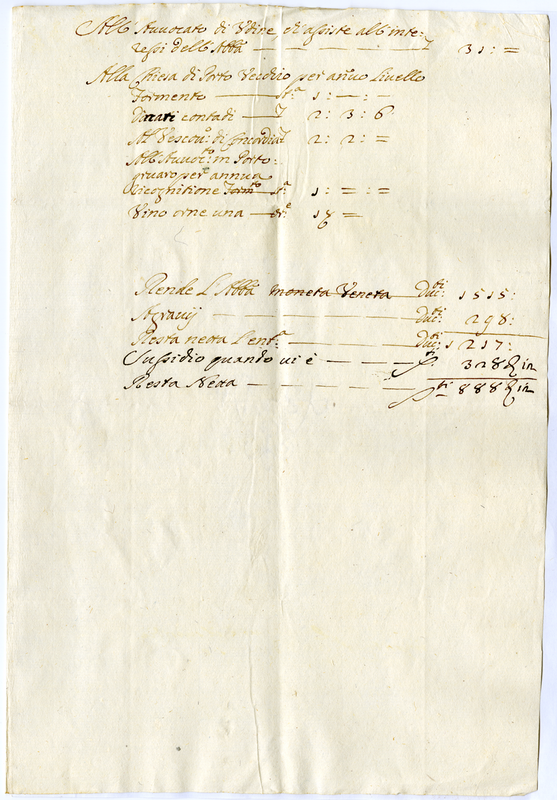 All Avvocato di Vdine ch'assiste all inte:
ressi dell Abb:ª — — — — 31: =
Alla Chiesa di Porto Vecchio per an:uo Livello
Formento — St:ª 1: — : —
Ducati contadi — 2: 3: 6
Al Vescou:º di Concordia 2: 2: =
All Auuoc:to in Porto:
gruaro per annua
ricognitione Form:to St:ª 1: = : =
Vino orne una — 18 =
Rende L'Abb:ª moneta Veneta Duc:ti 1515:
Agravij — Duc:ti 298:
Resta netta L'ent:ª — Duc:ti 1217:
Sussidio quando ui è — — — 328
Resta Netta — — — — — — 888